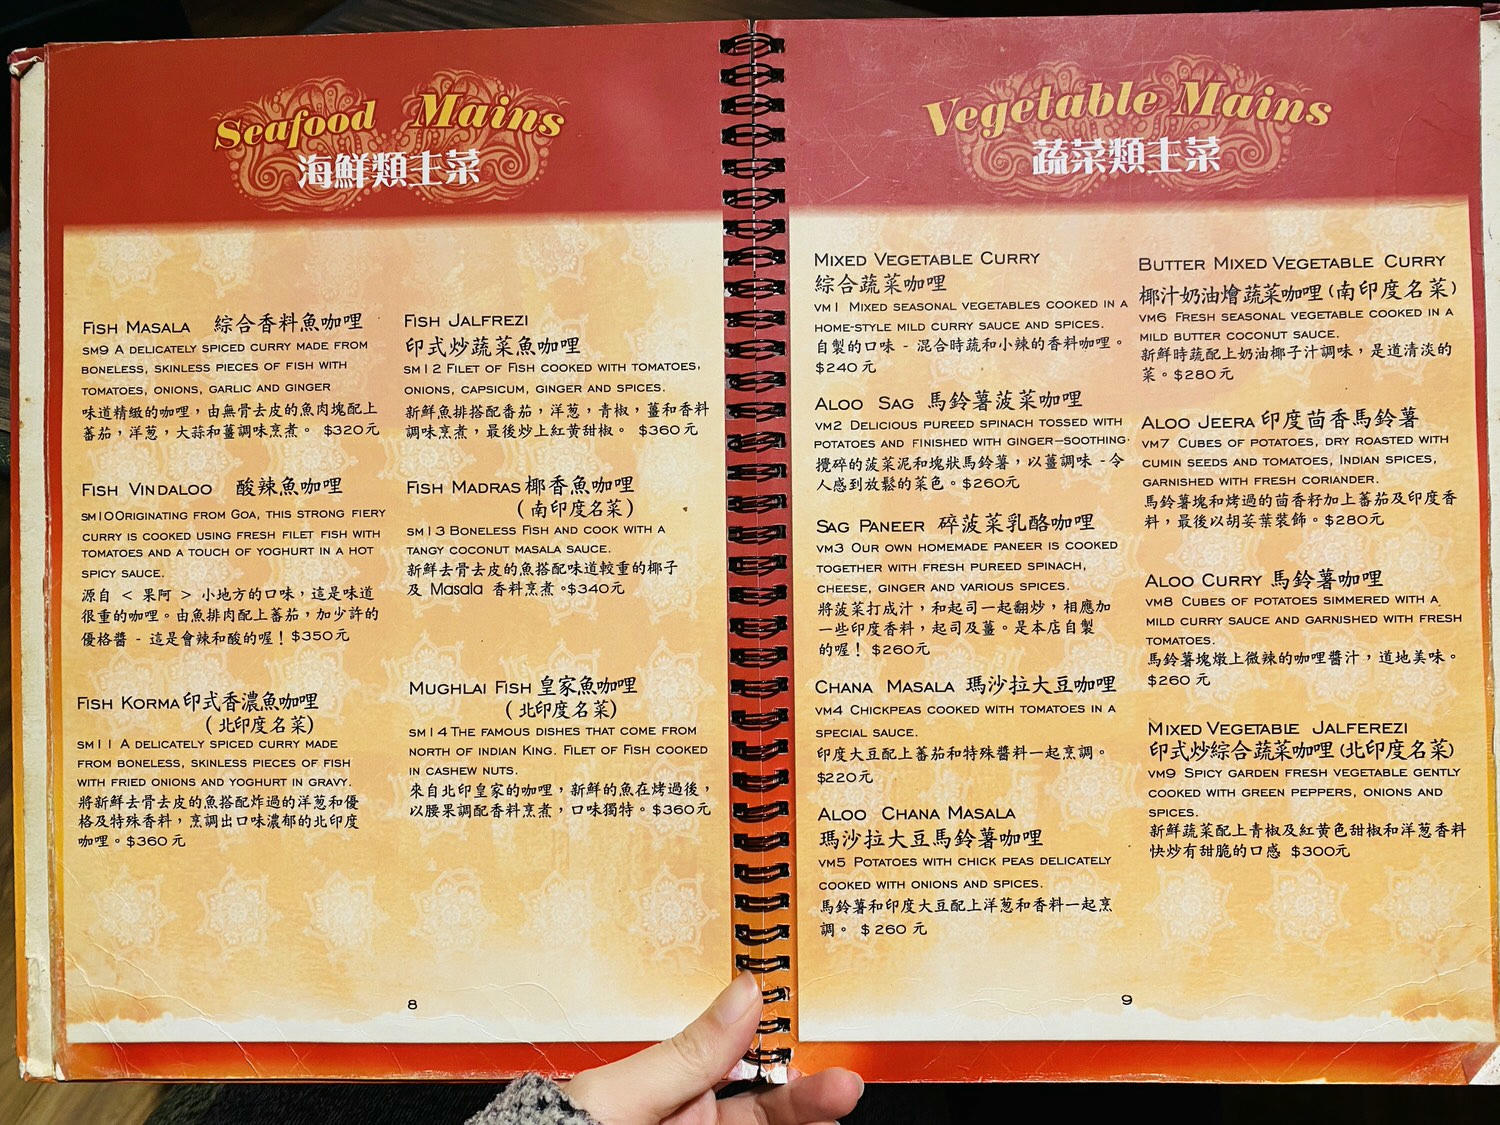 Seafood Mains
海鮮類主菜
FISH MASALA 綜合香料魚咖哩
SM9 A DELICATELY SPICED CURRY MADE FROM
BONELESS, SKINLESS PIECES OF FISH WITH
TOMATOES, ONIONS, GARLIC AND GINGER
味道精緻的咖哩，由無骨去皮的魚肉塊配上
蕃茄，洋葱，大蒜和薑調味烹煮。 $320元
FISH VINDALOO 酸辣魚咖哩
SM10ORIGINATING FROM GOA, THIS STRONG FIERY
CURRY IS COOKED USING FRESH FILET FISH WITH
TOMATOES AND A TOUCH OF YOGHURT IN A HOT
SPICY SAUCE.
源自 < 果阿 > 小地方的口味，這是味道
很重的咖哩。由魚排肉配上蕃茄，加少許的
優格醬 - 這是會辣和酸的喔！$350元
FISH KORMA 印式香濃魚咖哩
(北印度名菜)
SM11 A DELICATELY SPICED CURRY MADE
FROM BONELESS, SKINLESS PIECES OF FISH
WITH FRIED ONIONS AND YOGHURT IN GRAVY.
將新鮮去骨去皮的魚搭配炸過的洋葱和優
格及特殊香料，烹調出口味濃郁的北印度
咖哩。$360元
FISH JALFREZI
印式炒蔬菜魚咖哩
SM12 FILET OF FISH COOKED WITH TOMATOES,
ONIONS, CAPSICUM, GINGER AND SPICES.
新鮮魚排搭配番茄，洋葱，青椒，薑和香料
調味烹煮，最後炒上紅黃甜椒。$360元
FISH MADRAS 椰香魚咖哩
(南印度名菜)
SM13 BONELESS FISH AND COOK WITH A
TANGY COCONUT MASALA SAUCE.
新鮮去骨去皮的魚搭配味道較重的椰子
及 Masala 香料烹煮。$340元
MUGHLAI FISH 皇家魚咖哩
(北印度名菜)
SM14 THE FAMOUS DISHES THAT COME FROM
NORTH OF INDIAN KING. FILET OF FISH COOKED
IN CASHEW NUTS.
來自北印皇家的咖哩，新鮮的魚在烤過後，
以腰果調配香料烹煮，口味獨特。$360元
8
Vegetable Mains
蔬菜類主菜
MIXED VEGETABLE CURRY
綜合蔬菜咖哩
VM1 MIXED SEASONAL VEGETABLES COOKED IN A
HOME-STYLE MILD CURRY SAUCE AND SPICES.
自製的口味 - 混合時蔬和小辣的香料咖哩。
$240元
ALOO SAG 馬鈴薯菠菜咖哩
VM2 DELICIOUS PUREED SPINACH TOSSED WITH
POTATOES AND FINISHED WITH GINGER-SOOTHING.
攪碎的菠菜泥和塊狀馬鈴薯，以薑調味 -令
人感到放鬆的菜色。$260元
SAG PANEER 碎菠菜乳酪咖哩
VM3 OUR OWN HOMEMADE PANEER IS COOKED
TOGETHER WITH FRESH PUREED SPINACH,
CHEESE, GINGER AND VARIOUS SPICES.
將菠菜打成汁，和起司一起翻炒，相應加
一些印度香料，起司及薑。是本店自製
的喔！ $260元
CHANA MASALA 瑪沙拉大豆咖哩
VM4 CHICKPEAS COOKED WITH TOMATOES IN A
SPECIAL SAUCE.
印度大豆配上蕃茄和特殊醬料一起烹調。
$220元
ALOO CHANA MASALA
瑪沙拉大豆馬鈴薯咖哩
VM5 POTATOES WITH CHICK PEAS DELICATELY
COOKED WITH ONIONS AND SPICES.
馬鈴薯和印度大豆配上洋葱和香料一起烹
調。 $260元
BUTTER MIXED VEGETABLE CURRY
椰汁奶油燴蔬菜咖哩(南印度名菜)
VM6 FRESH SEASONAL VEGETABLE COOKED IN A
MILD BUTTER COCONUT SAUCE.
新鮮時蔬配上奶油椰子汁調味，是道清淡的
菜。$280元
ALOO JEERA 印度茴香馬鈴薯
VM7 CUBES OF POTATOES, DRY ROASTED WITH
CUMIN SEEDS AND TOMATOES, INDIAN SPICES,
GARNISHED WITH FRESH CORIANDER.
馬鈴薯塊和烤過的茴香籽加上蕃茄及印度香
料，最後以胡荽葉裝飾。$280元
ALOO CURRY 馬鈴薯咖哩
VM8 CUBES OF POTATOES SIMMERED WITH A
MILD CURRY SAUCE AND GARNISHED WITH FRESH
TOMATOES.
馬鈴薯塊燉上微辣的咖哩醬汁，道地美味。
$260元
MIXED VEGETABLE JALFEREZI
印式炒綜合蔬菜咖哩(北印度名菜)
VM9 SPICY GARDEN FRESH VEGETABLE GENTLY
COOKED WITH GREEN PEPPERS, ONIONS AND
SPICES.
新鮮蔬菜配上青椒及紅黃色甜椒和洋葱香料
快炒有甜脆的口感 $300元
9